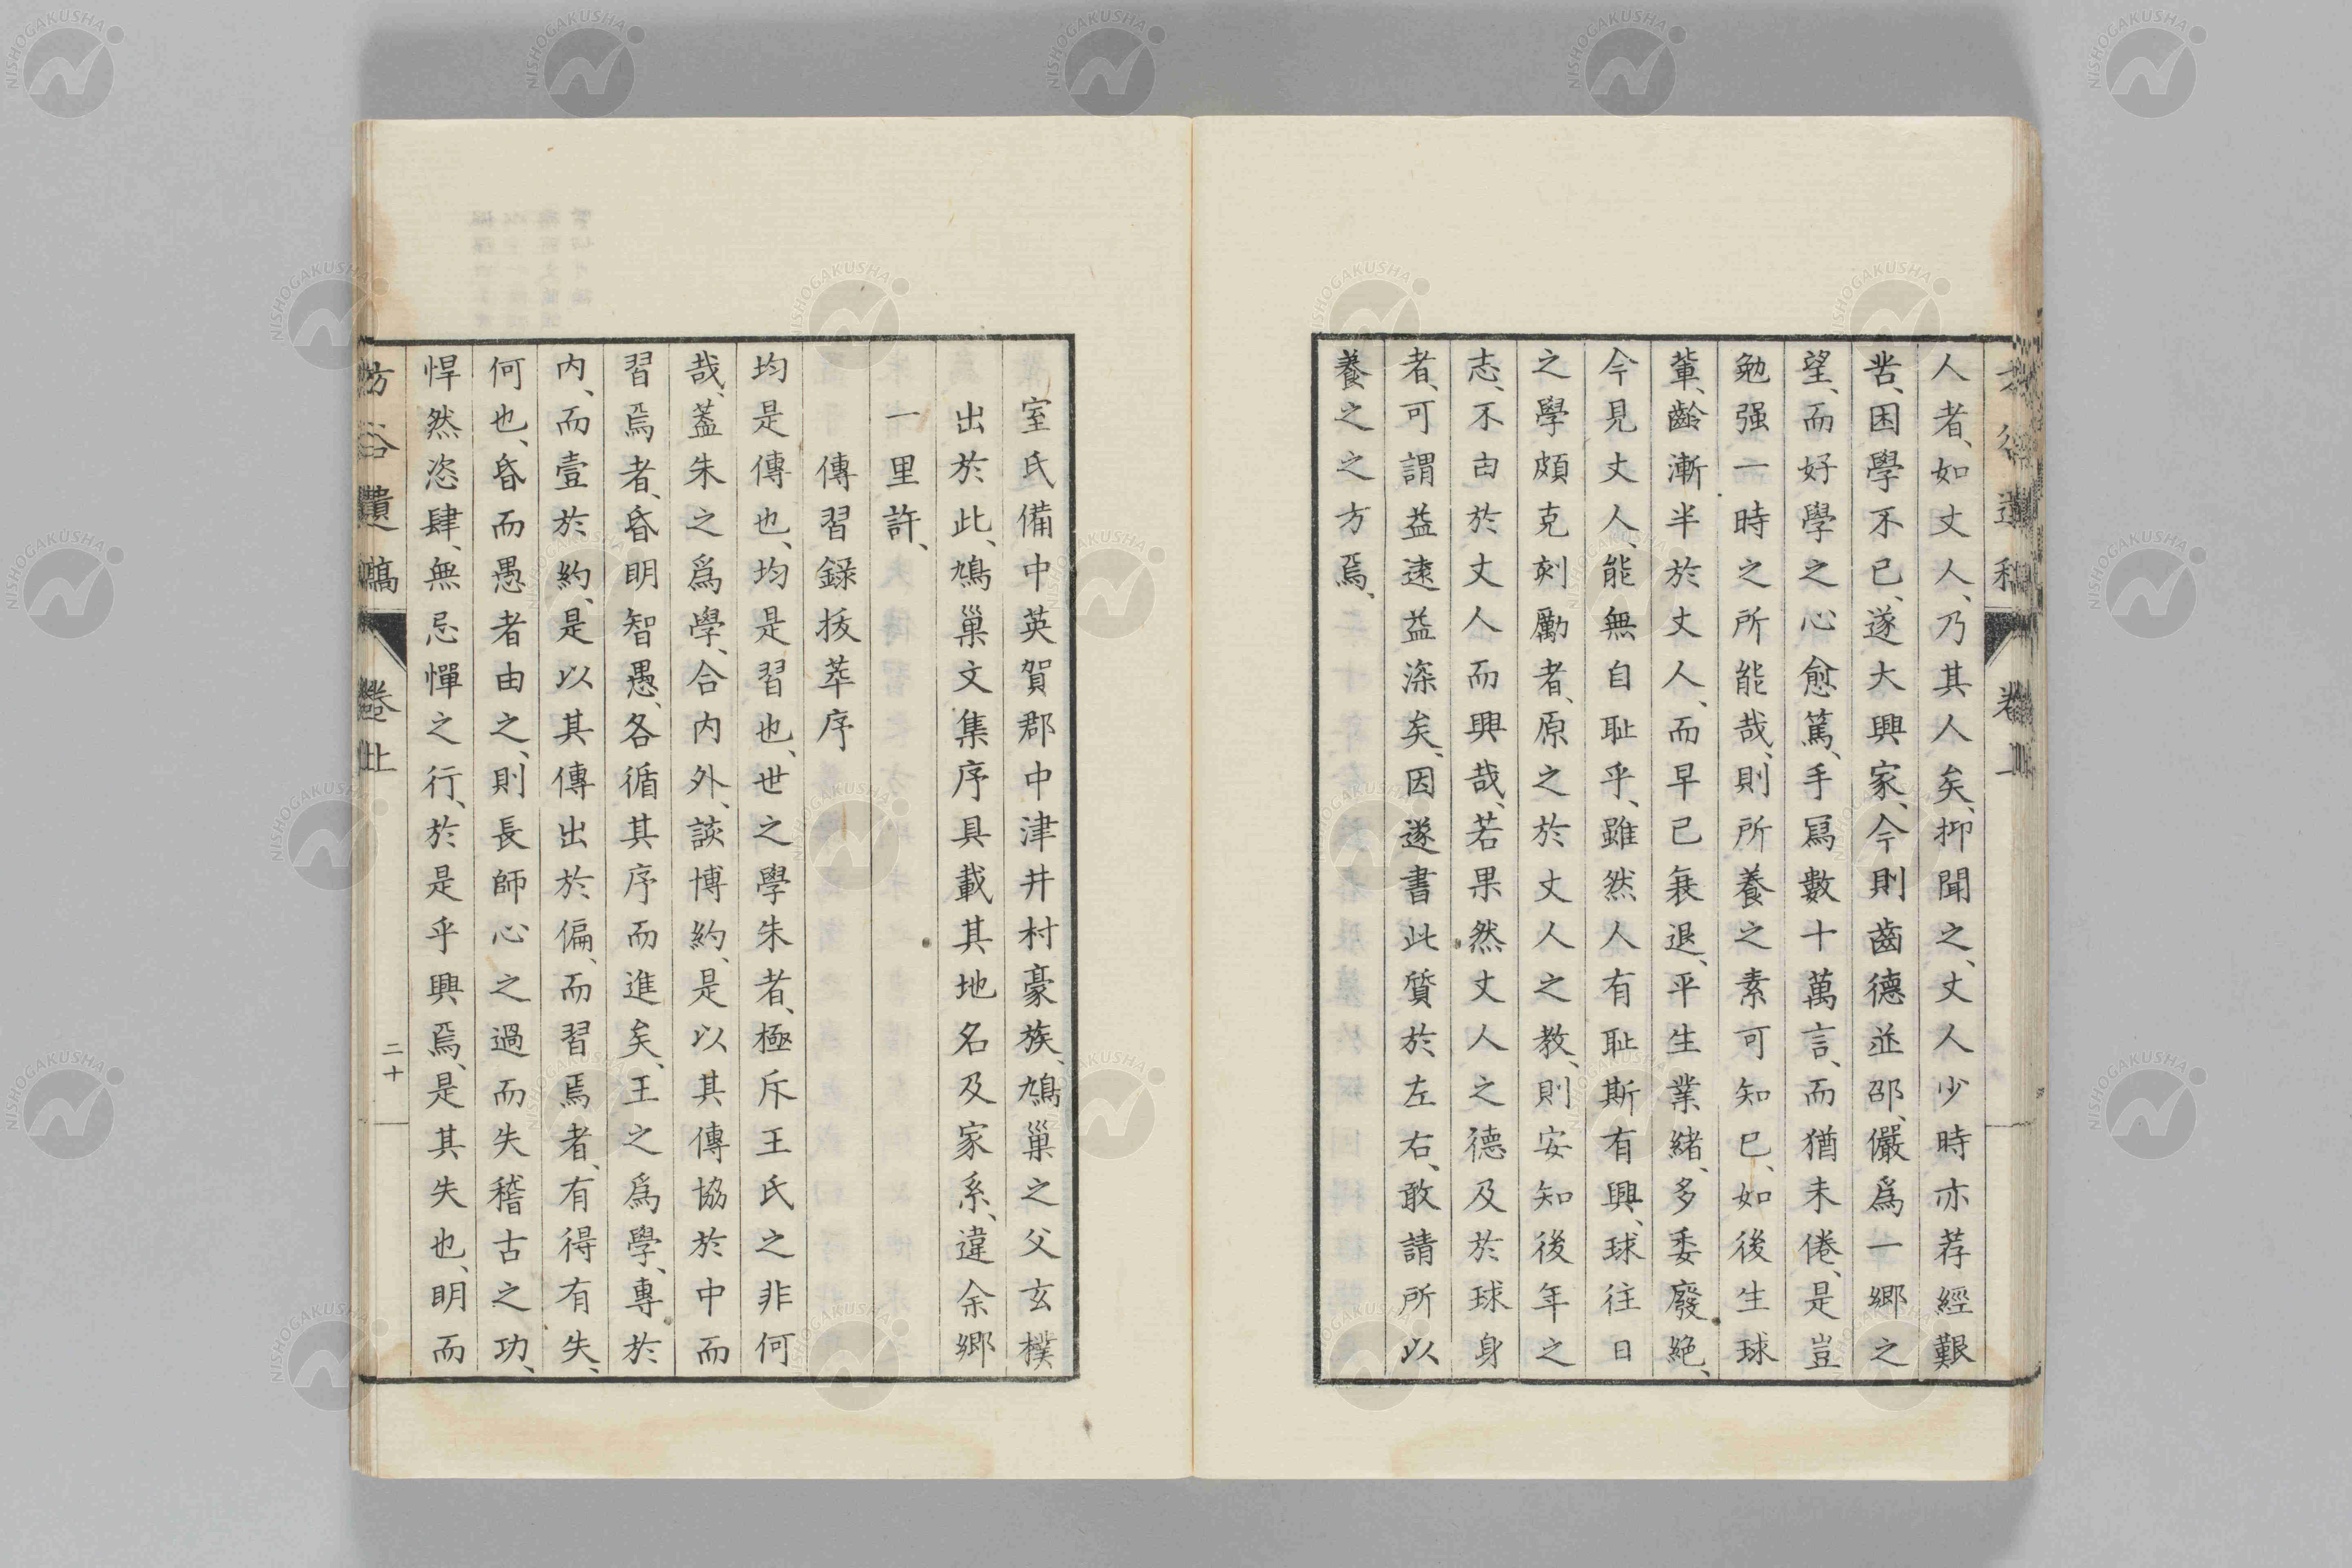 人者、如丈人、乃其人矣、抑聞之、丈人少時亦荐經艱
苦、困學不已、遂大興家、今則齒德並邵、儼爲一郷之
望、而好學之心愈篤、手冩數十萬言、而猶未倦、是豈
勉强一時之所能哉、則所養之素可知已、如後生球
輩、齡漸半於丈人、而早已衰退、平生業緒、多委廢絶、
今見丈人、能無自耻乎、雖然人有耻斯有興、球往日
之學頗克刻勵者、原之於丈人之教、則安知後年之
志、不由於丈人而興哉、若果然丈人之德及於球身
者、可謂益遠益深矣、因遂書此質於左右、敢請所以
養之之方焉、
室氏備中英賀郡中津井村豪族、鳩巢之父玄樸
出於此、鳩巢文集序具載其地名及家系、違余郷
一里許、
傳習録拔萃序
均是傳也、均是習也、世之學朱者、極斥王氏之非何
哉、蓋朱之爲學、合内外、談博約、是以其傳協於中而
習焉者、昏明智愚、各循其序而進矣、王之爲學、專於
内、而壹於約、是以其傳出於偏、而習焉者、有得有失、
何也、昏而愚者由之、則長師心之過而失稽古之功、
悍然恣肆、無忌憚之行、於是乎興焉、是其失也、明而
谷遺稿 卷 二十
NISHOGAKUSHA